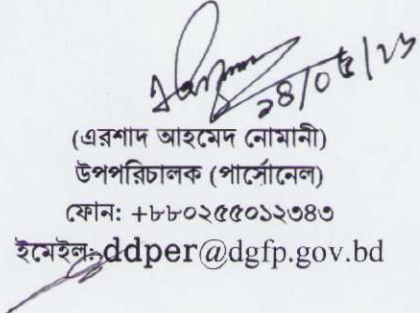 ২৪/০৫/২৩
(এরশাদ আহমেদ নোমানী)
উপপরিচালক (পার্সোনেল)
ফোন: +৮৮০২৫৫০১২৩৪৩
ইমেইল: ddper@dgfp.gov.bd